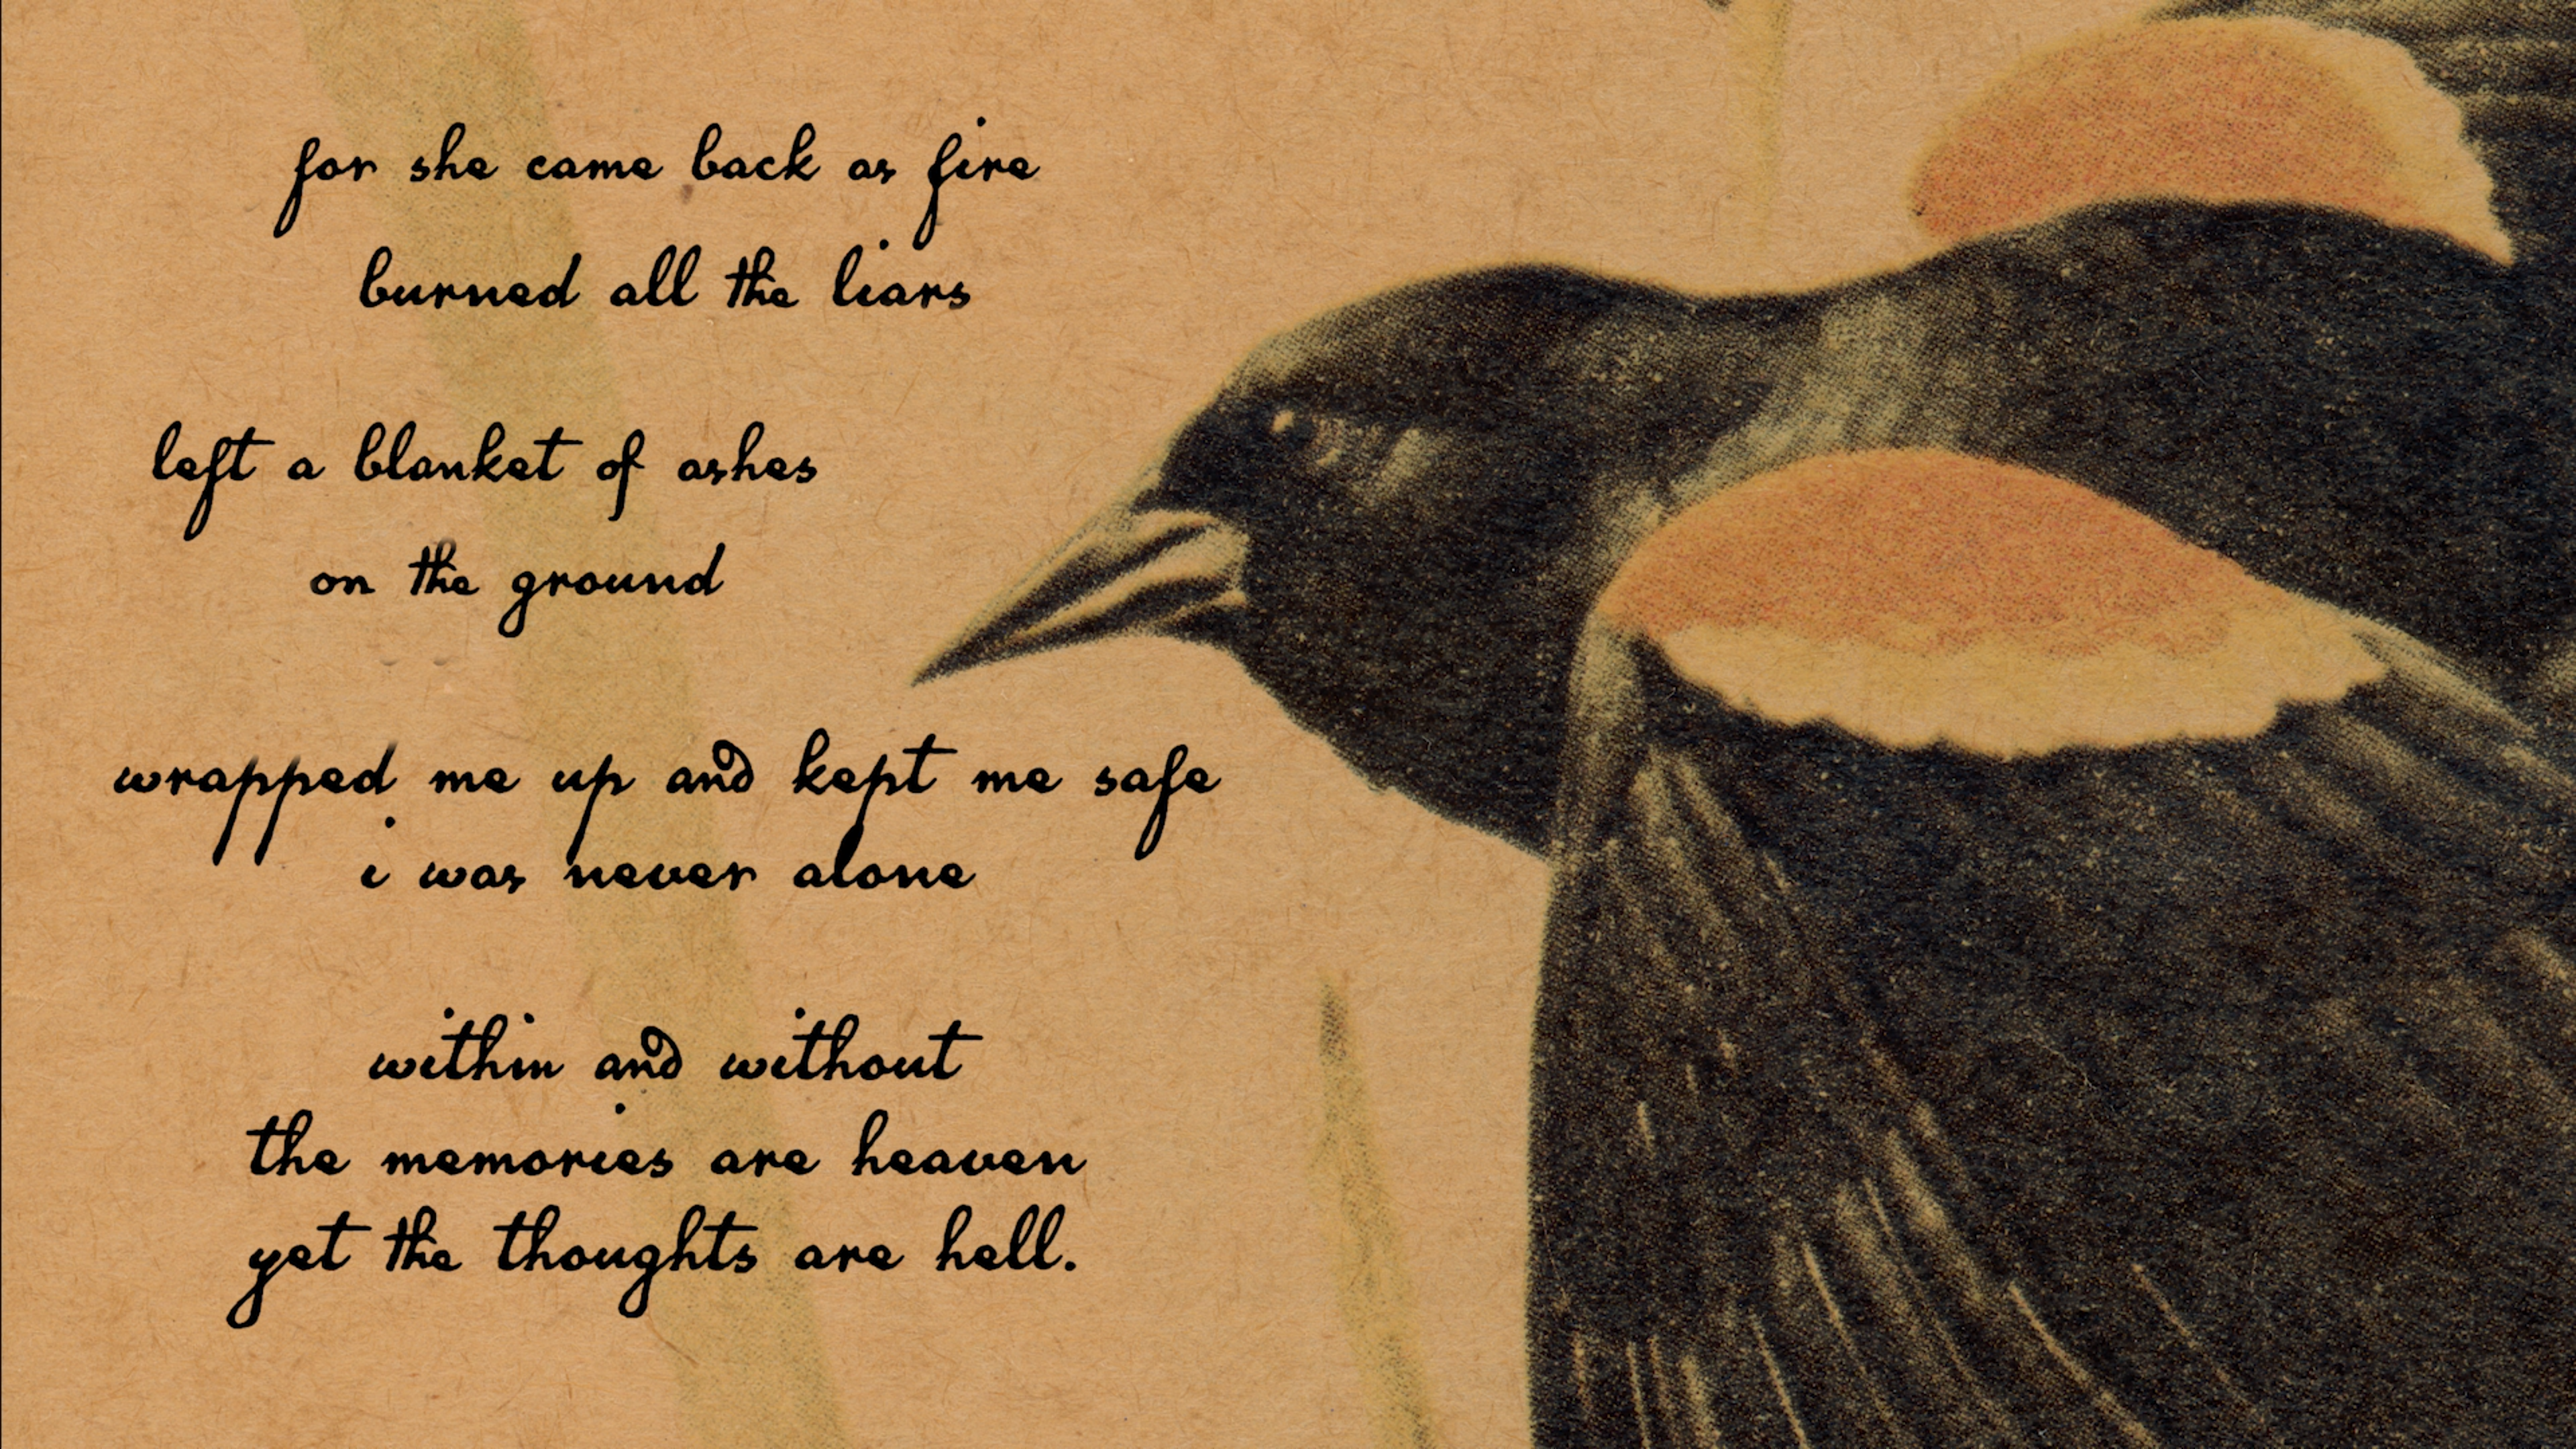 for she came back as fire
burned all the liars
left a blanket of ashes
on the ground
wrapped me up and kept me safe
i was never alone
within and without
the memories are heaven
yet the thoughts are hell.